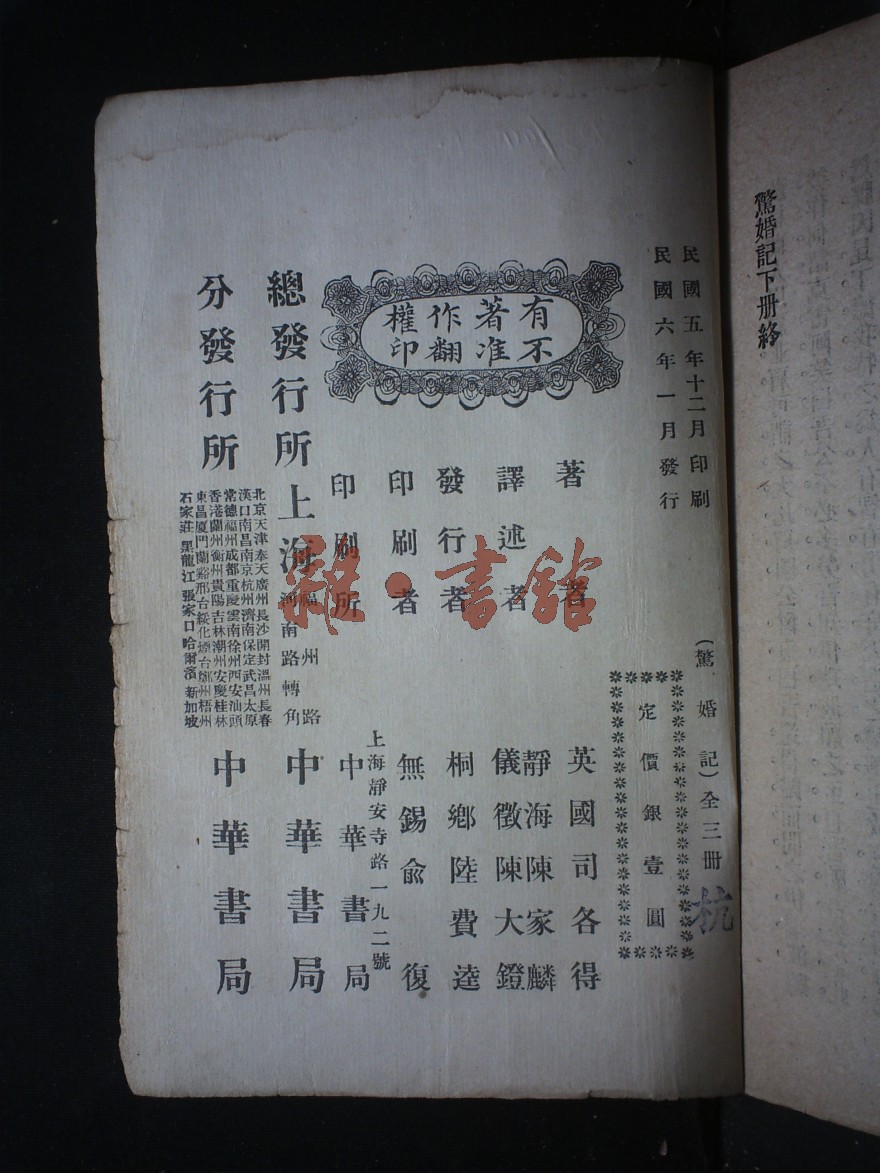 驚婚記下册終
民國五年十二月印刷
民國六年一月發行
(驚婚記)全三册
杭
定價銀壹圓
有不
著准
作翻
權印
著者 英國司各得
譯述者 靜海陳家麟
儀徵陳大鐙
發行者 桐鄉陸費逵
印刷者 無錫俞復
印刷所 上海靜安寺路一九二號
中華書局
總發行所 上海福州路
河南路轉角
中華書局
分發行所
北京天津奉天廣州長沙開封溫州長春
漢口南昌南京杭州濟南保定武昌太原
常德福州成都重慶雲南徐州西安汕頭
香港蘭州衡州貴陽吉林潮州安慶桂林
東昌厦門蘭谿邢台綏化烟台鄭州梧州
石家莊 黑龍江 張家口 哈爾濱 新加坡
中華書局
雜·書館